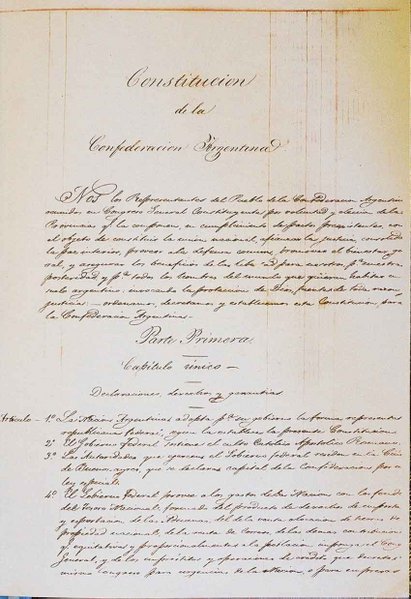 Constitucion
de la
Confederacion Argentina
Nos los Representantes del Pueblo de la Confederacion Argentina
reunidos en Congreso General Constituyente por voluntad y eleccion de las
Provincias que la componen, en cumplimiento de pactos preexistentes, con
el objeto de constituir la union nacional, afianzar la justicia, consolidar
la paz interior, proveer a la defensa comun, promover el bienestar
y asegurar los beneficios de la para nosotros para nuestra
posteridad y para todos los hombres del mundo que quieran habitar en
suelo argentino: invocando la proteccion de Dios, fuente de toda razon
justicia: ordenamos, decretamos y establecemos esta Constitucion, para
la Confederacion Argentina.
Parte Primera
Capitulo único
Declaraciones, derechos y garantias
Articulo 1.º La Nacion Argentina adopta para su gobierno la forma representativa
republicana federal, segun la establece la presente Constitucion.
2.º El Gobierno Federal sostiene el culto Católico Apostólico Romano.
3.º Las Autoridades que ejercen el Gobierno federal residen en la Ciudad
de Buenos ayres, que se declara capital de la Confederacion por
ley especial.
4.º El Gobierno Federal provee a los gastos de la Nacion con los fondos
del Tesoro Nacional, formado del producto de derechos de
y esportacion de las Aduanas, del de la venta o locacion de tierras de
propiedad nacional, de la renta de Correos, de las demas contribuciones
que equitativa y proporcionalmente a la poblacion imponga el Congreso
General, y de los empréstitos y operaciones de crédito que decrete
mismo Congreso para urgencias de la Nacion o para empresas